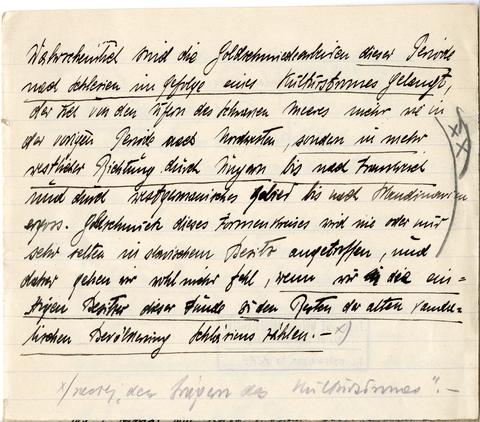 Wahrscheinlich sind die Goldschmiedearbeiten dieser Periode
nach Schlesien im Gefolge eines Kulturstromes gelangt,
der sich von den Ufern des Schwarzen Meeres mehr wie in
der vorigen Periode nach Nordwesten, sondern in mehr
westlicher Richtung durch Ungarn bis nach Frankreich
und durch westgermanisches Gebiet bis nach Skandinavien
ergoss. Goldschmuck dieses Formenkreises wird nie oder nur
sehr selten in slavischem Besitz angetroffen, und
daher gehen wir wohl mehr fehl, wenn wir die ein-
stigen Besitzer dieser Funde zu den Resten der alten vanda-
lischen Bevölkerung Schlesiens zählen. – x)
x) den Trägern des Kulturstromes". –